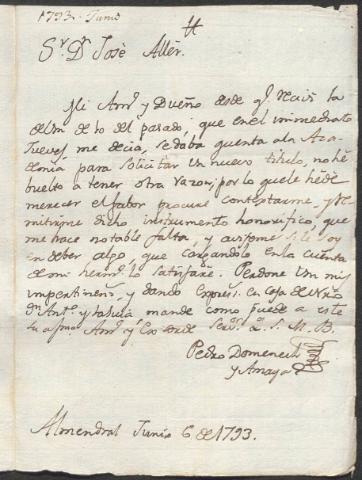 1793. Junio
Sr. Dn. Josè Allèr.
Mi Amo. y Dueño desde qe. recivi la
de Vm de 10 del pasado; que en el inmediato
Jueves, me decia, se daba quenta a la Aca-
demia para solicitar un nuevo titulo, no hè
buelto a tener otra razon; por lo que le hè de
merecer el fabor procure contestarme, y re-
mitirme dicho instrumento honorifico, que
me hace notable falta, y aviseme si le soy
en deber algo, que cargandolo en la cuenta
de mi hermo. lo satisfare. Perdone Vm mis
impertinens. y dando expresis. en casa de Nro
Dn. Anto. y mande como puede a este
su afmo Amo. y Q. S. M. B.
Pedro Domenech
y Amaya
Almendral Junio 6 de 1793.